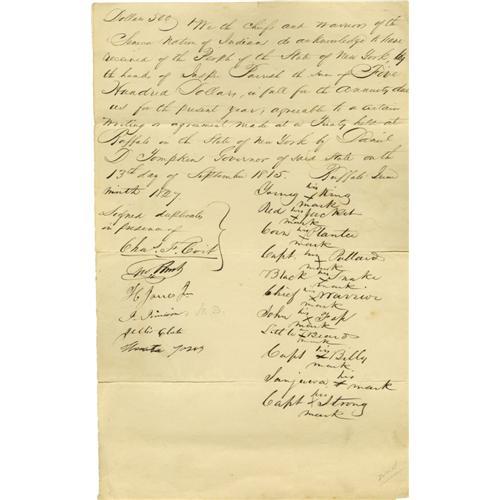 Dollars 500 We the Chiefs and warriors of the
Seneca Nation of Indians do acknowledge to have
received of the People of the State of New York, by
the hands of Jasper Parrish the sum of Five
Hundred Dollars, in full for the Annuity due
us for the present year; agreeable to a certain
writing or agreement made at a Treaty held at
Buffalo in the State of New York by Daniel
D Tompkins Governor of said State on the
13th day of September 1815. Buffalo June
ninth 1827
Signed duplicates
in presence of
Chas. T. Coit
H Jones Jr
Young his x mark King
Red his x mark Jacket
Corn his x mark Planter
Capt. his x mark Pollard
Black his x mark Snake
Chief his x mark Warrior
John his x mark
Little x mark Beard
Capt his x mark Billy
his x mark
Capt his x mark Strong